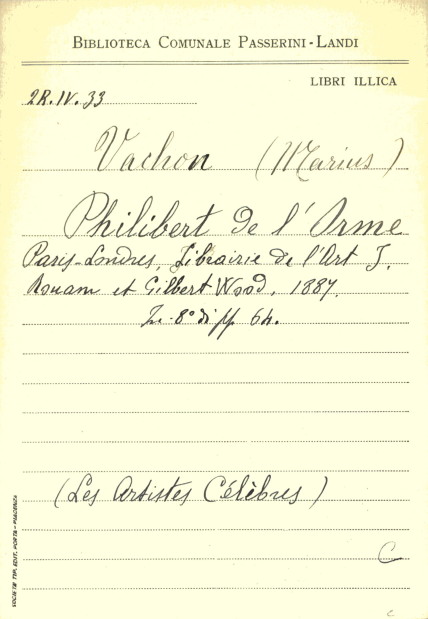 BIBLIOTECA COMUNALE PASSERINI-LANDI
LIBRI ILLICA
2R.IV.33
Vachon (Marius)
Philibert de l'Orme
Paris-Londres, Librairie de l'Art J.
Rouam et Gilbert Wood, 1887.
In-8° di pp 64.
(Les Artistes Célèbres)
C
SOCIETÀ TIP. EDIT. PORTA - PIACENZA
c